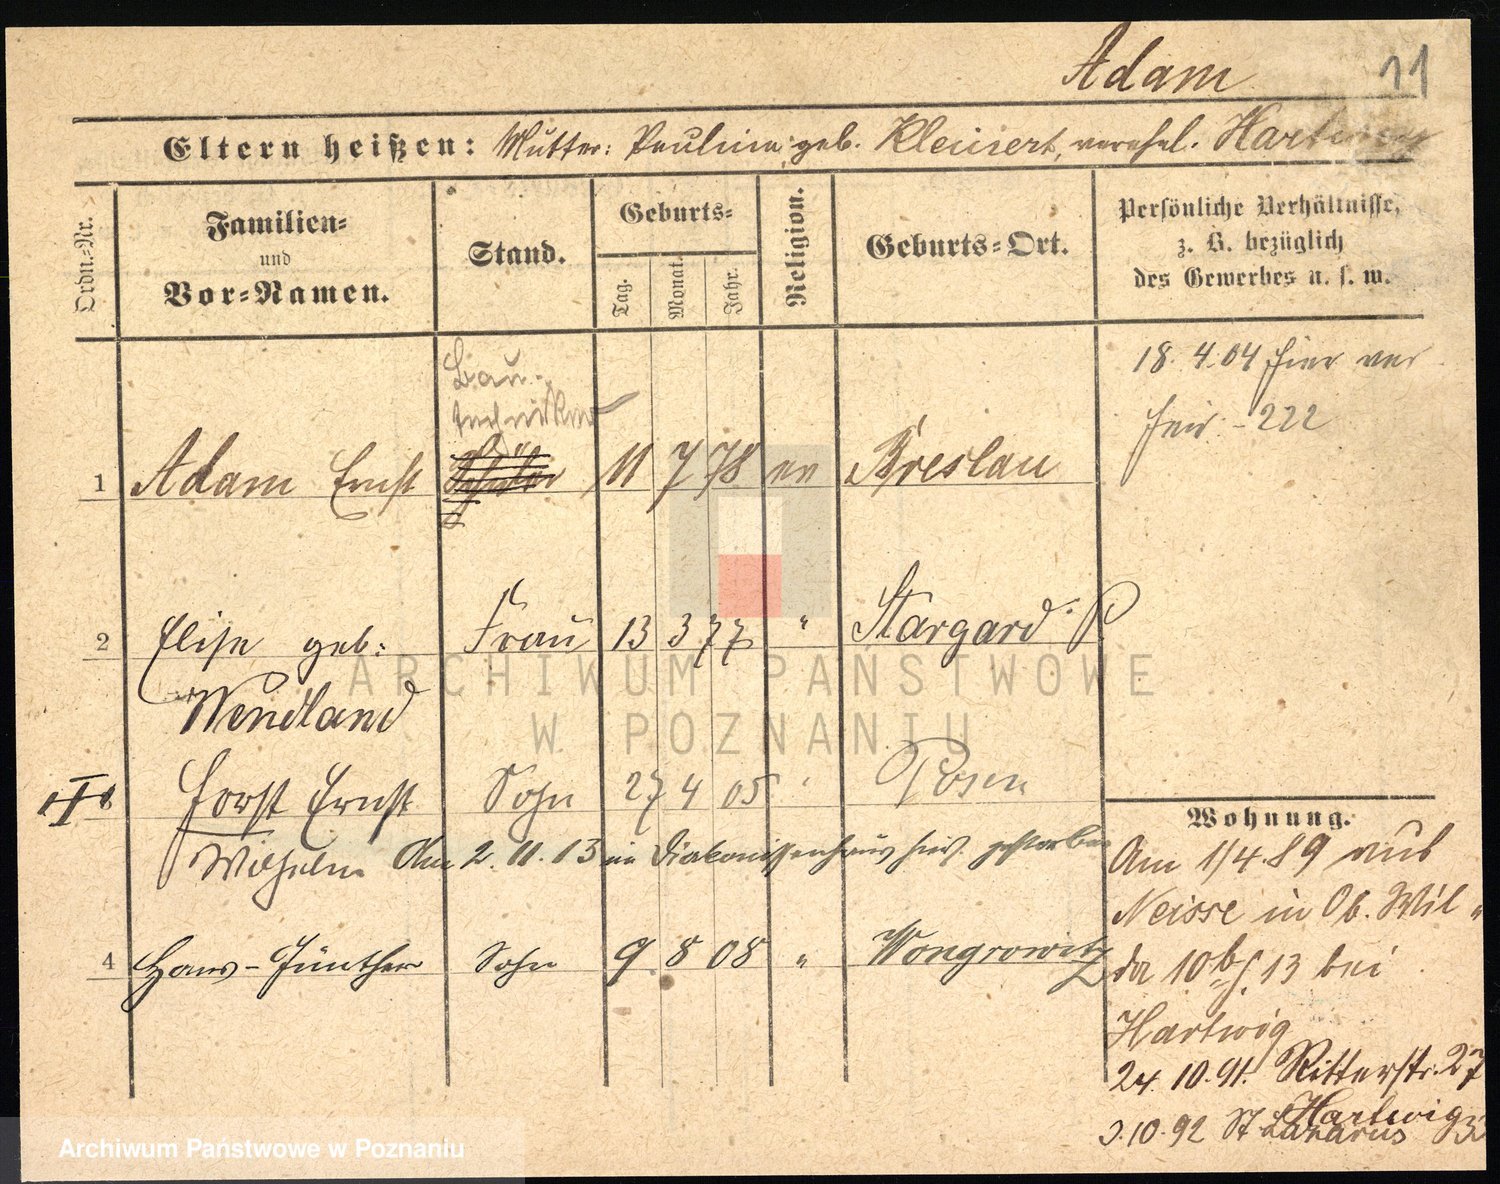 Adam 11
Eltern heißen: Mutter: Paulina geb. Kleinert, verehel. Hartwig
Ordn.-Nr.
Familien-
und
Vor-Namen.
Stand.
Geburts-
Tag.
Monat.
Jahr.
Religion.
Geburts-Ort.
Persönliche Verhältnisse,
z. B. bezüglich
des Gewerbes u. s. w.
18. 4. 04 hier ver
heir. - 222
Bau-
techniker
1 Adam Ernst Schüler 11 7 78 ev Breslau
2 Elise geb: Frau 13 3 77 " Stargard P.
Wendland
Horst Ernst Sohn 27 4 05 " Posen
Wilhelm Am 2. 11. 13 im Diakonissenhaus hier gestorben
4 Hans-Günther Sohn 9 8 08 " Wongrowitz
Wohnung.
Am 1/4. 89 aus
Neisse in Ob. Wil-
da 10 b/H. 13 bei
Hartwig
24. 10. 91. Ritterstr. 27
Hartwig
3. 10. 92 St. Lazarus
ARCHIWUM PAŃSTWOWE
W POZNANIU
Archiwum Państwowe w Poznaniu